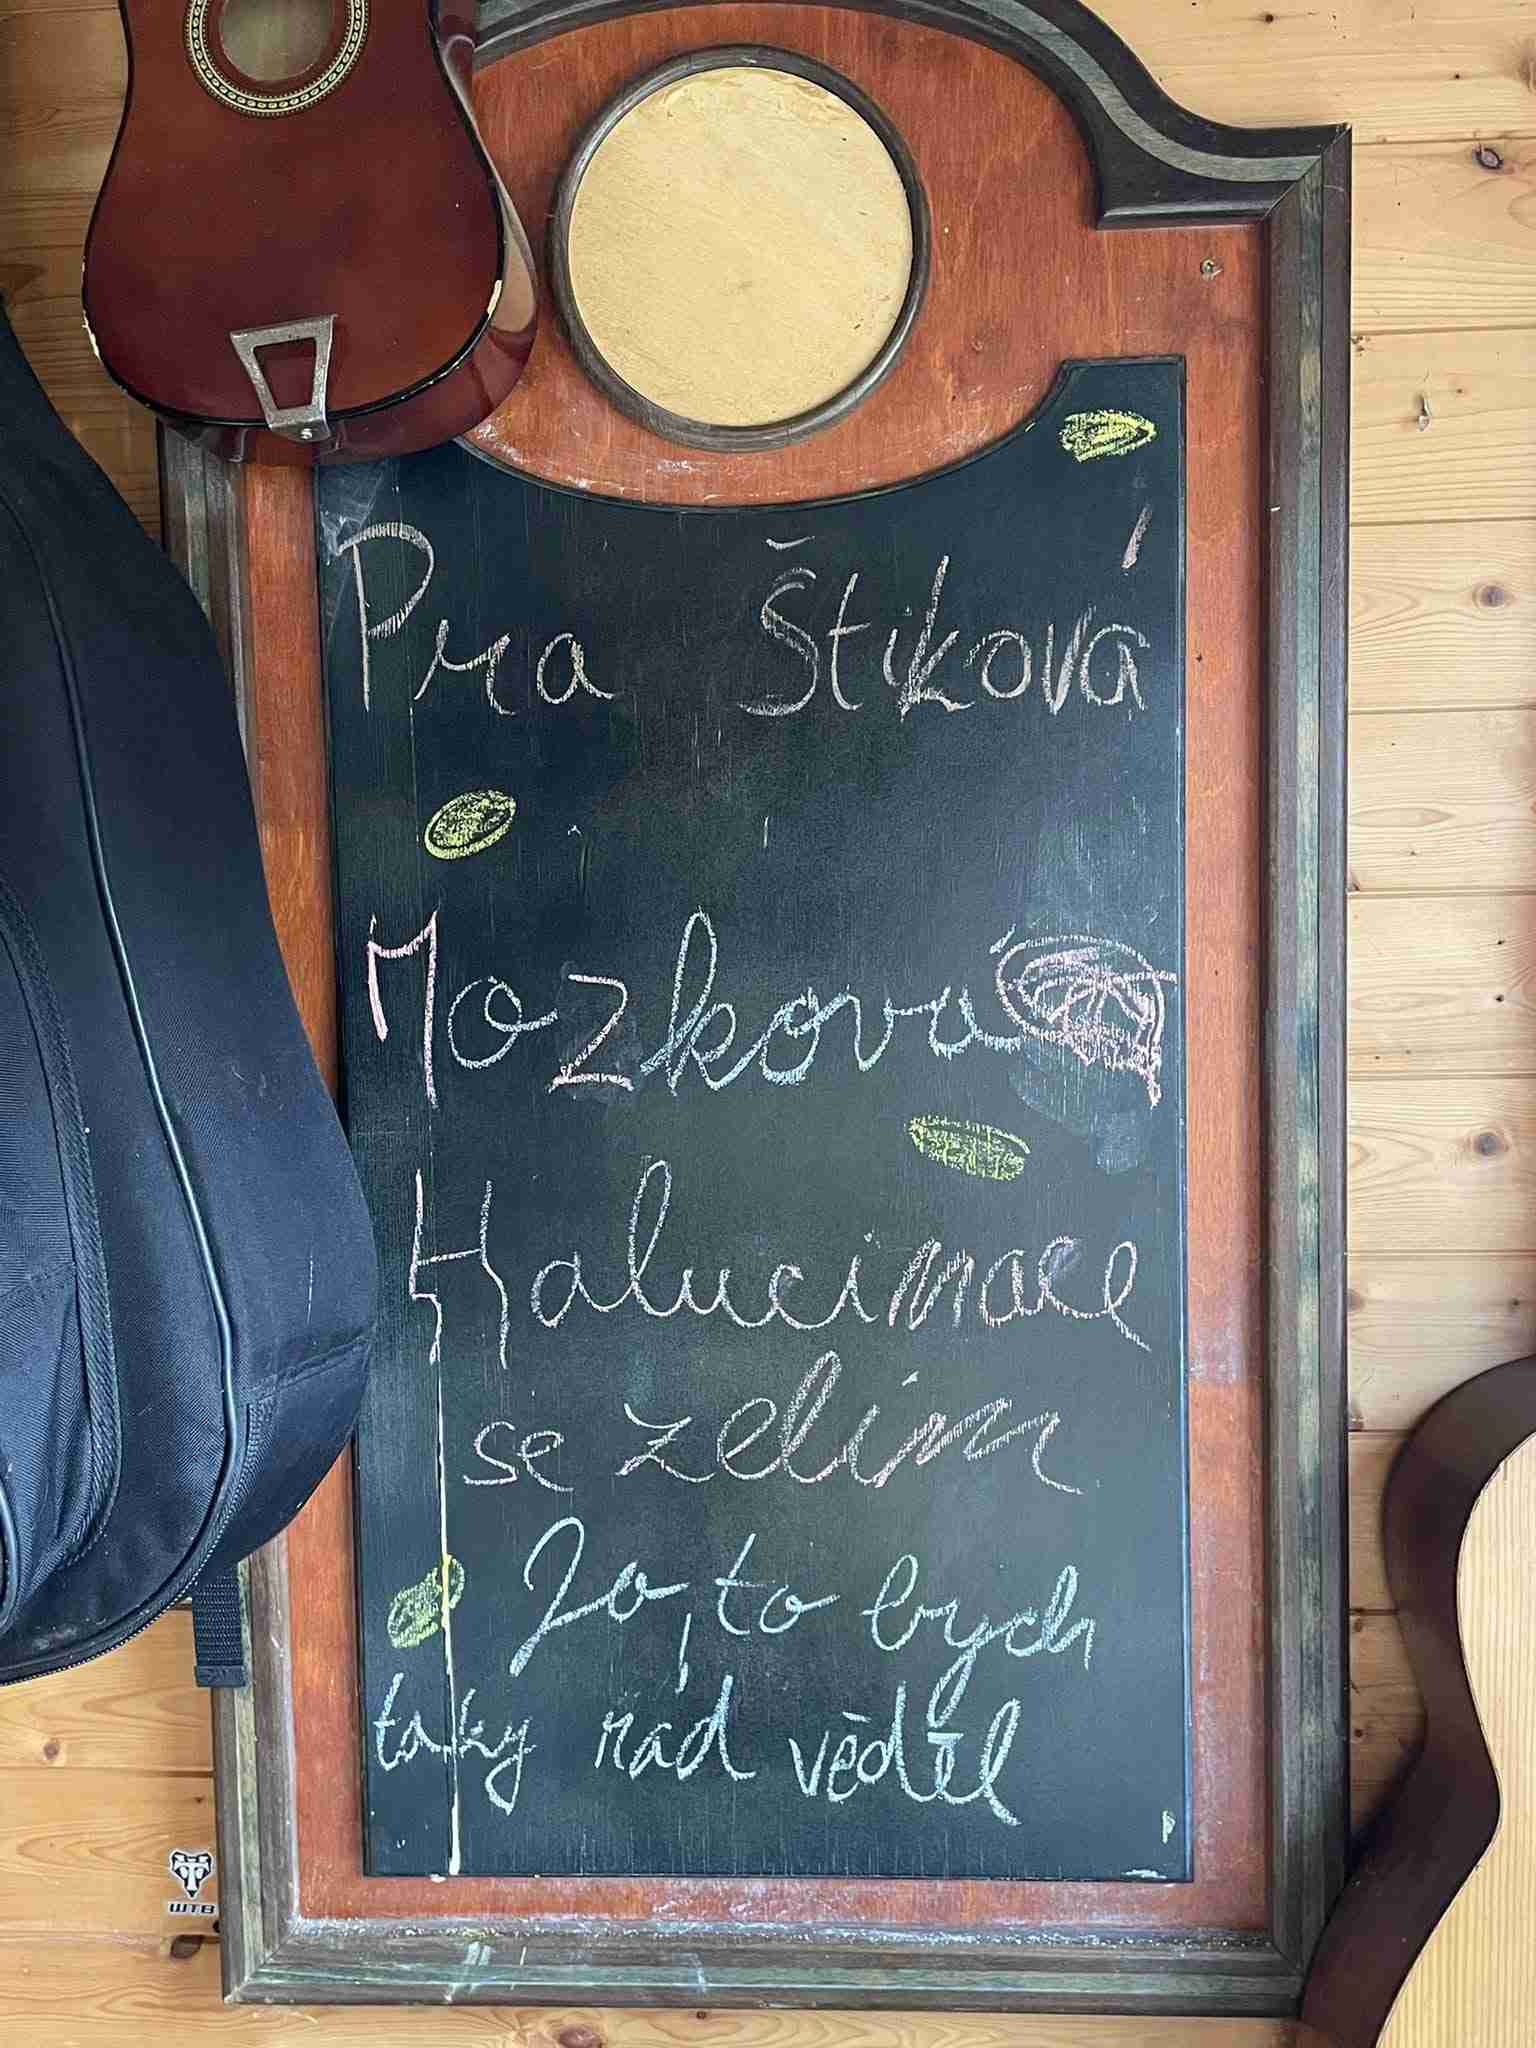 Pra Štiková
Mozková
Halucinace
se zelím
Jo, to bych
taky rád věděl
WTB